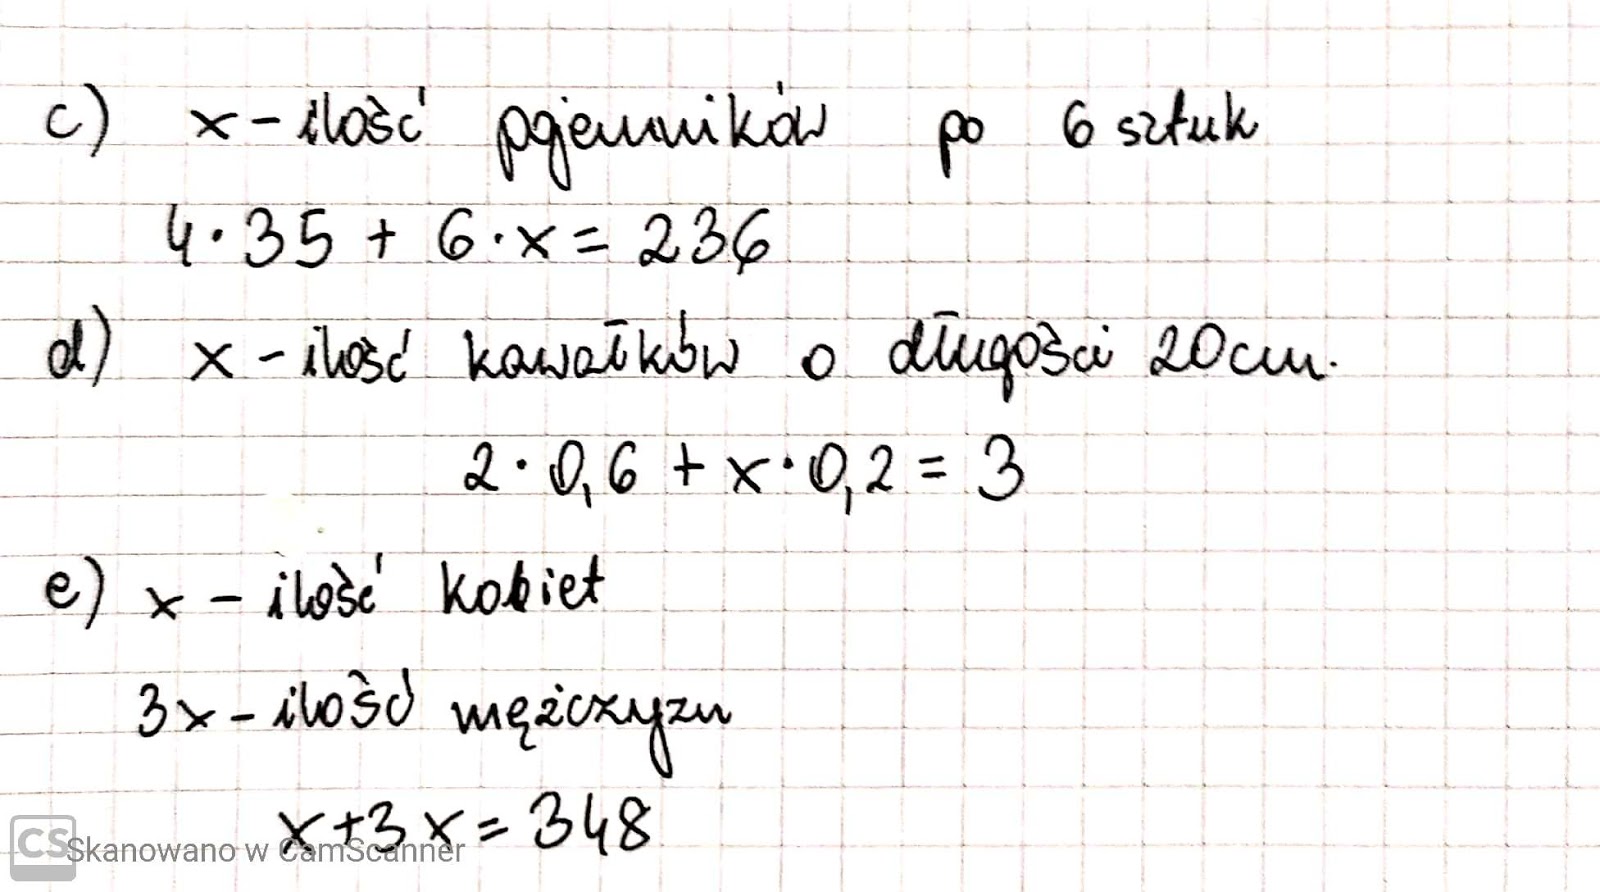 c) x - ilość pojemników po 6 sztuk
4·35 + 6·x = 236
d) x - ilość kawałków o długości 20cm.
2·0,6 + x·0,2 = 3
e) x - ilość kobiet
3x - ilość mężczyzn
x+3x = 348
CS Skanowano w CamScanner